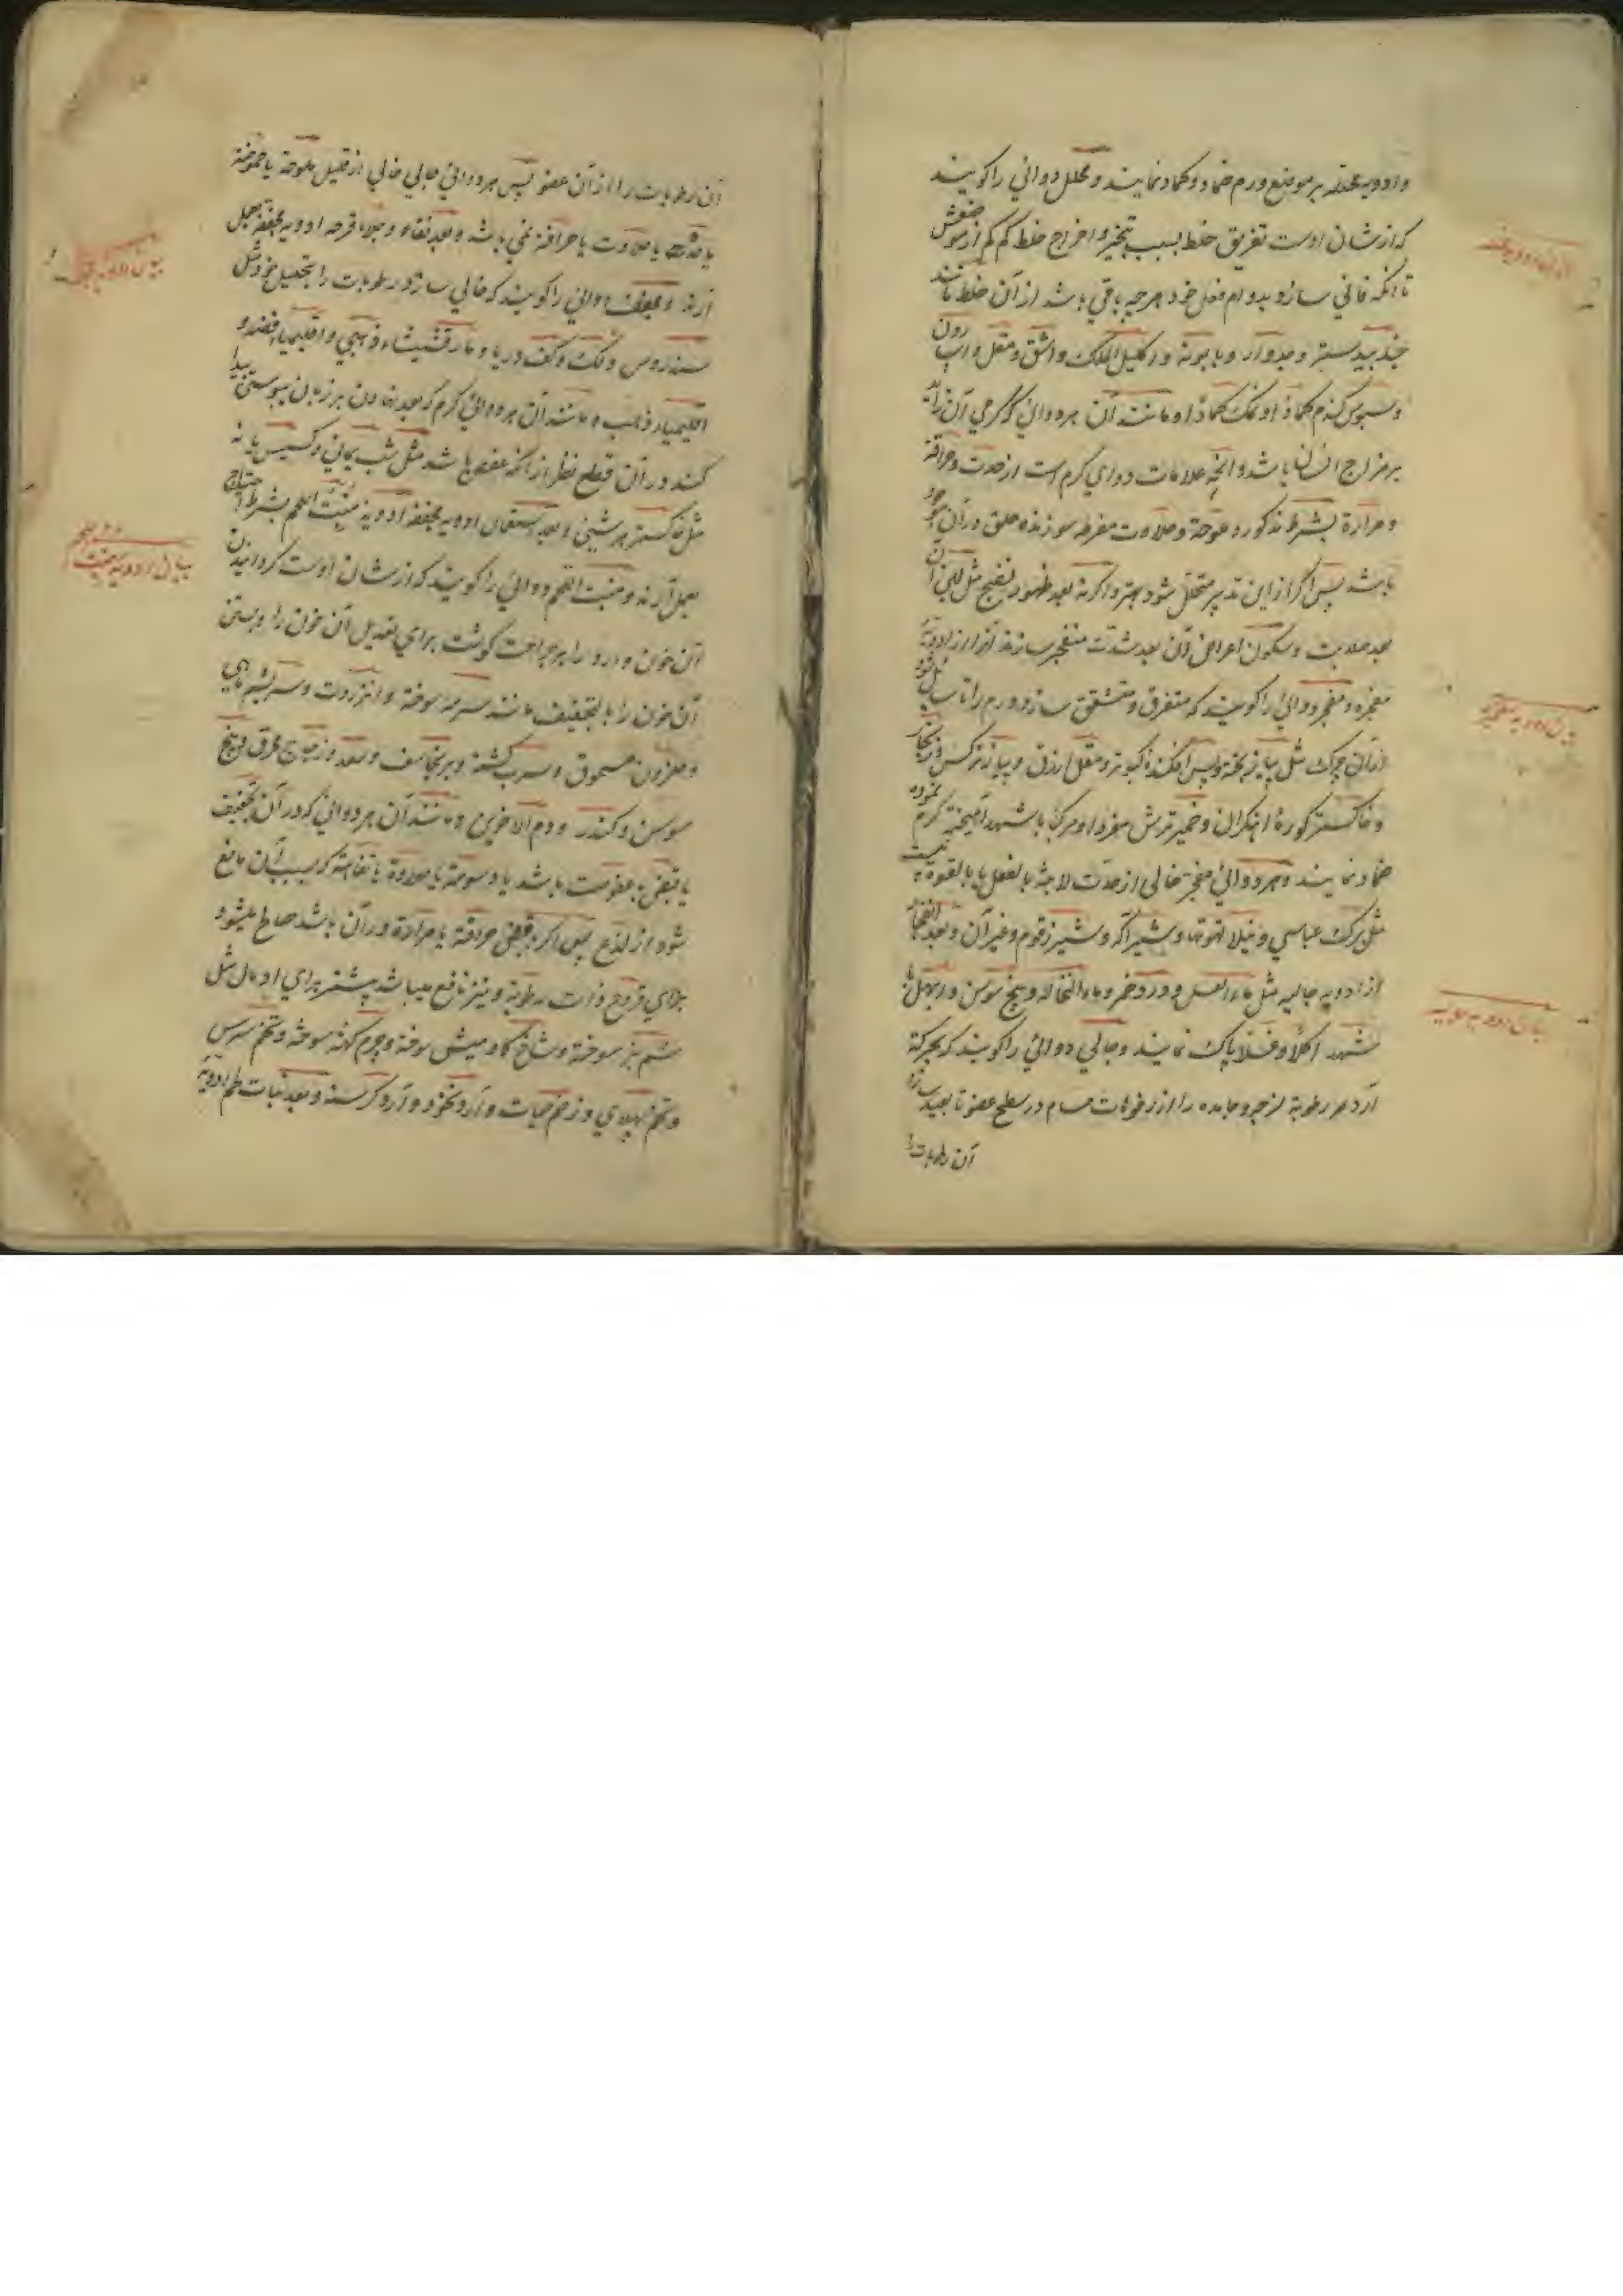 و ادویه محلله بر موضع ورم ضماد و کماد نمایند و محلل دوائی را گویند
که از شان اوست تفریق خلط بسبب تبخیر و اخراج خلط کم کم از موضعش
تا آنکه فانی سازد بدوام فعل خود هرچه باقی باشد از آن خلط مانند
جندبیدستر و جدوار و بابونه و اکلیل الملک و اشق و مقل و
و سبوس گندم کمادا و نمک کمادا و مانند آن هر دوائی که گرمی آن زائد
بر مزاج انسان باشد و آنچه علامات دوای گرم است از حدت و حرافة
و مرارة بشرط مذکور و ملوحة و حلاوت مفرطه سوزنده حلق در آن موجود
باشد پس اگر از این تدبیر متحلل شود بهتر و اگر نه بعد ظهور نضج مثل لین آن
بعد صلابت و سکون اعراض آن بعد شدت منفجر سازند آنرا از ادویه
مفجره و مفجر دوائی را گویند که متفرق و متشقق سازد ورم را تا
از آن چرک مثل پیاز پخته و پس افکنده کبوتر و مقل ازرق و پیاز نرگس و زنجار
و خاکستر کورهٔ آهنگران و خمیر ترش مفردا و مرکبا با شهد آمیخته گرم نموده
ضماد نمایند و هر دوائی مفجر خالی از حدت لاذعه بالفعل یا بالقوة نیست
مثل برک عباسی و نیلا تهوتها و شیر آکه و شیر زقوم و غیر آن و بعد انفجار
از ادویه جالیه مثل ماء العسل و درد خمر و ماء النخاله و بیخ سوسن و
شهد اکلا و غسلا پاک نمایند و جالی دوائی را گویند که بحرکة
آرد هر رطوبة لزجه و جامده را از فوهات مسام در سطح عضو تا بعید سازد
آن رطوبات را
آن رطوبات را از آن عضو پس هر دوائی جالی خالی از قلیل ملوحة یا حموضة
یا یا حلاوت یا حرافة نمی باشد و بعد نقاء و جلاء قرحه ادویه مجففه بعمل
آرند و مجفف دوائی را گویند که فانی سازد رطوبات را بتحلیل خود مثل
سندروس و نمک و کف دریا و مارقشیشاء ذهبی و اقلیمیاء فضه و
اقلیمیاء ذهب و مانند آن هر دوائی گرم که بعد نهادن بر زبان یبوستی پیدا
کند در آن قطع نظر از آنکه عفص باشد مثل شب یمانی و کسیس یا نه
مثل خاکستر هر شیئی و بعد استعمال ادویه مجففه ادویه منبت اللحم بشرط احتیاج
بعمل آرند و منبت اللحم دوائی را گویند که از شان اوست گردانیدن
آن خون وارد را بر جراحت گوشت برای تعدیل آن خون را و بستن
آن خون را بالتجفیف مانند سرمه سوخته و انزروت و سریشم ماهی
و حلزون مسحوق و سرب کشته و برنجاسف و سعد و زجاج محرق و بیخ
سوسن و کندر و دم الاخوین و مانند آن هر دوائی که در آن تجفیف
یا قبض یا عفوصت باشد یا دسومة یا حلاوة یا تفاهة که بسبب آن مانع
شود از لذع پس اگر با قبض حرافة یا مرارة در آن باشد صالح میشود
برای قروح ذات رطوبة و نیز نافع میباشد بیشتر برای اندمال مثل
سم بز سوخته و شاخ گاومیش سوخته و چرم کهنه سوخته و تخم سرس
و تخم و زخم حیات و آرد نخود و آرد کرسنه و بعد نبات لحم ادویه
بیان ادویه محلله
بیان ادویه مفجره
بیان ادویه جالیه
بیان ادویه مجففه
بیان ادویه منبت اللحم